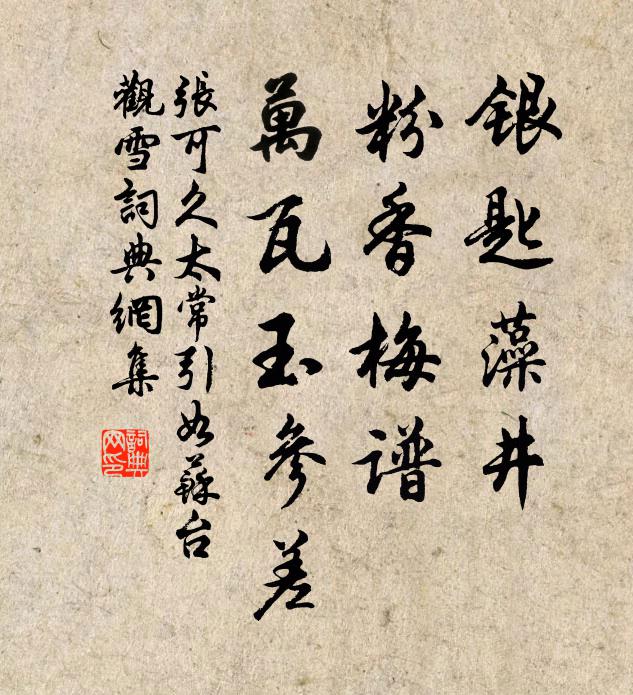 銀匙藻井
粉香梅譜
萬瓦玉參差
張可久太常引如蘇台
觀雪詞典網集
詞典網印